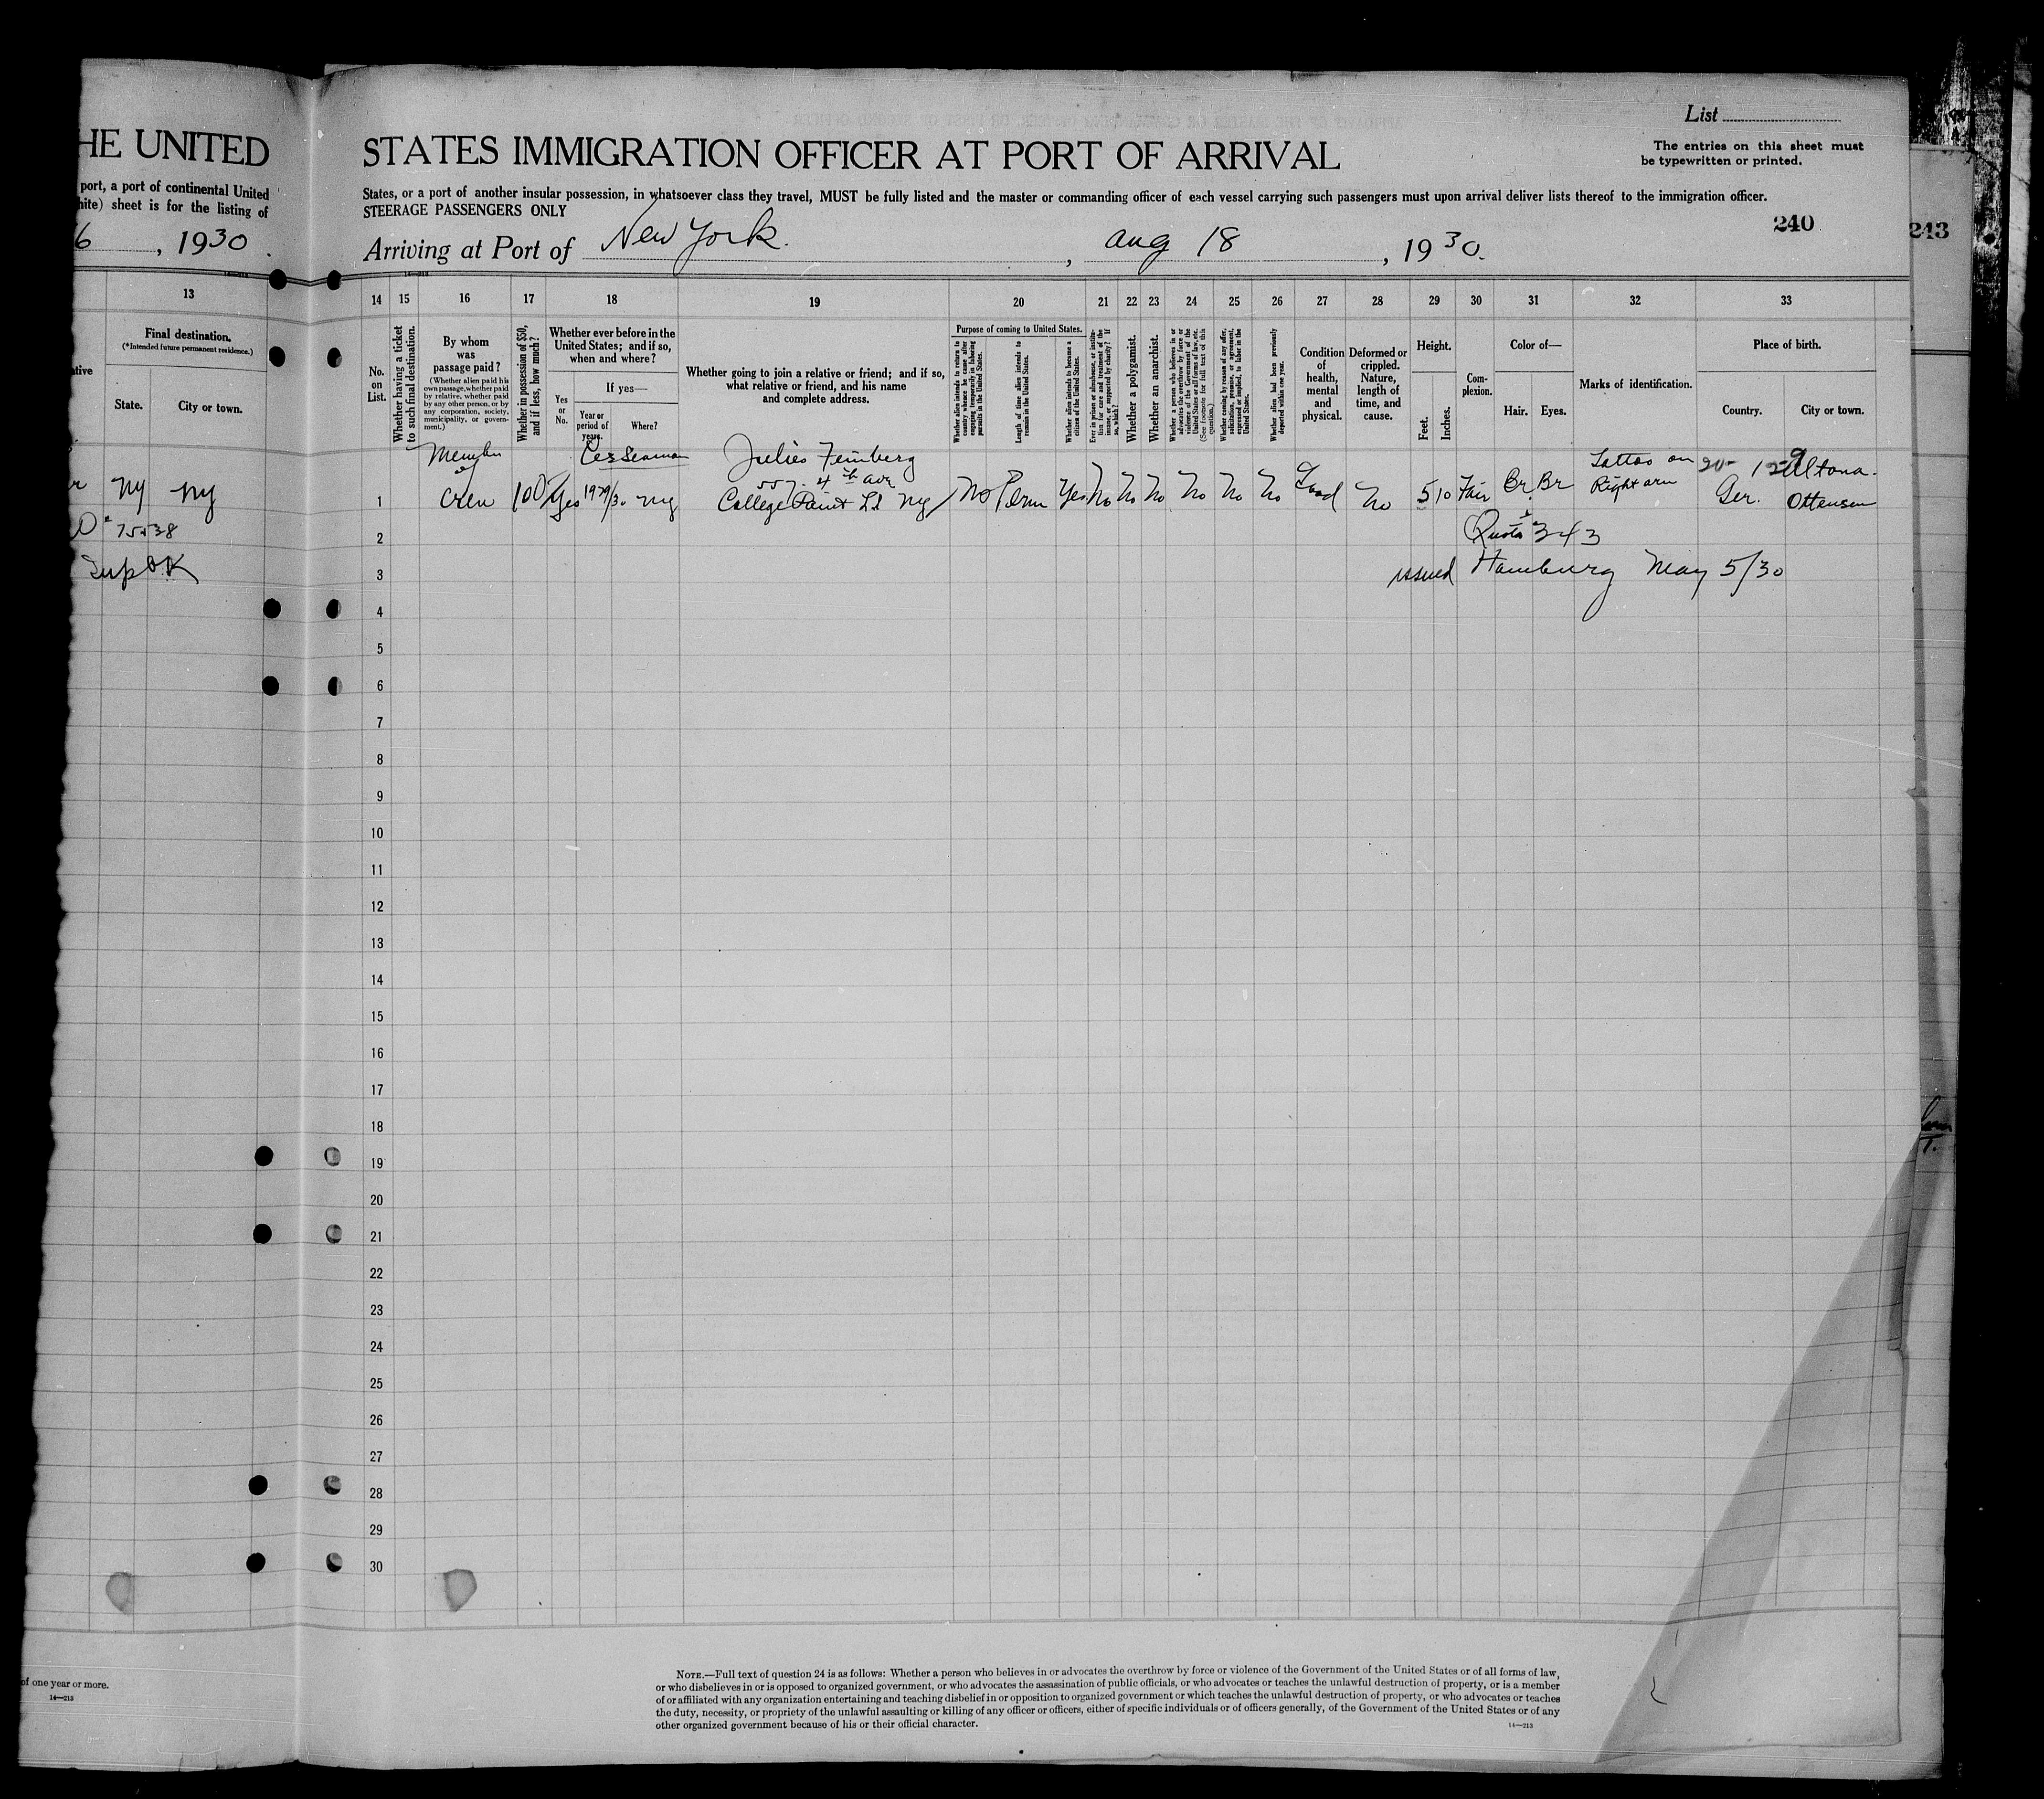 HE UNITED
port, a port of continental United
hite) sheet is for the listing of
6, 1930
13
Final destination.
(*Intended future permanent residence.)
State. City or town.
NY NY
75538
List
STATES IMMIGRATION OFFICER AT PORT OF ARRIVAL
The entries on this sheet must
be typewritten or printed.
States, or a port of another insular possession, in whatsoever class they travel, MUST be fully listed and the master or commanding officer of each vessel carrying such passengers must upon arrival deliver lists thereof to the immigration officer.
STEERAGE PASSENGERS ONLY
240
243
Arriving at Port of New York. , aug 18 , 1930.
14—213
14 15 16 17 18 19 20 21 22 23 24 25 26 27 28 29 30 31 32 33
No. on List.
Whether having a ticket to such final destination.
By whom was passage paid?
(Whether alien paid his own passage, whether paid by relative, whether paid by any other person, or by any corporation, society, municipality, or government.)
Whether in possession of $50, and if less, how much?
Whether ever before in the United States; and if so, when and where?
Yes or No.
If yes—
Year or period of years.
Where?
Whether going to join a relative or friend; and if so, what relative or friend, and his name and complete address.
Purpose of coming to United States.
Whether alien intends to return to country whence he came after engaging temporarily in laboring pursuits in the United States.
Length of time alien intends to remain in the United States.
Whether alien intends to become a citizen of the United States.
Ever in prison or almshouse, or institution for care and treatment of the insane, or supported by charity? If so, which?
Whether a polygamist.
Whether an anarchist.
Whether a person who believes in or advocates the overthrow by force or violence of the Government of the United States or all forms of law, etc. (See footnote for full text of this question.)
Whether coming by reason of any offer, solicitation, promise, or agreement, expressed or implied, to labor in the United States.
Whether alien had been previously deported within one year.
Condition of health, mental and physical.
Deformed or crippled. Nature, length of time, and cause.
Height.
Feet. Inches.
Complexion.
Color of—
Hair. Eyes.
Marks of identification.
Place of birth.
Country. City or town.
Member Seaman Julies Feinberg Tattoo on Altona-
of 557. 4th ave Right arm
1 crew 100 Yes 1929/30 NY College Point L.I. NY No Perm Yes No No No No No No Good No 5 10 Fair Br. Br Ger. Ottensen
2 Quota 343
3 issued Hamburg May 5/30
4
5
6
7
8
9
10
11
12
13
14
15
16
17
18
19
20
21
22
23
24
25
26
27
28
29
30
of one year or more.
14—213
NOTE.—Full text of question 24 is as follows: Whether a person who believes in or advocates the overthrow by force or violence of the Government of the United States or of all forms of law,
or who disbelieves in or is opposed to organized government, or who advocates the assassination of public officials, or who advocates or teaches the unlawful destruction of property, or is a member
of or affiliated with any organization entertaining and teaching disbelief in or opposition to organized government or which teaches the unlawful destruction of property, or who advocates or teaches
the duty, necessity, or propriety of the unlawful assaulting or killing of any officer or officers, either of specific individuals or of officers generally, of the Government of the United States or of any
other organized government because of his or their official character.
14—213